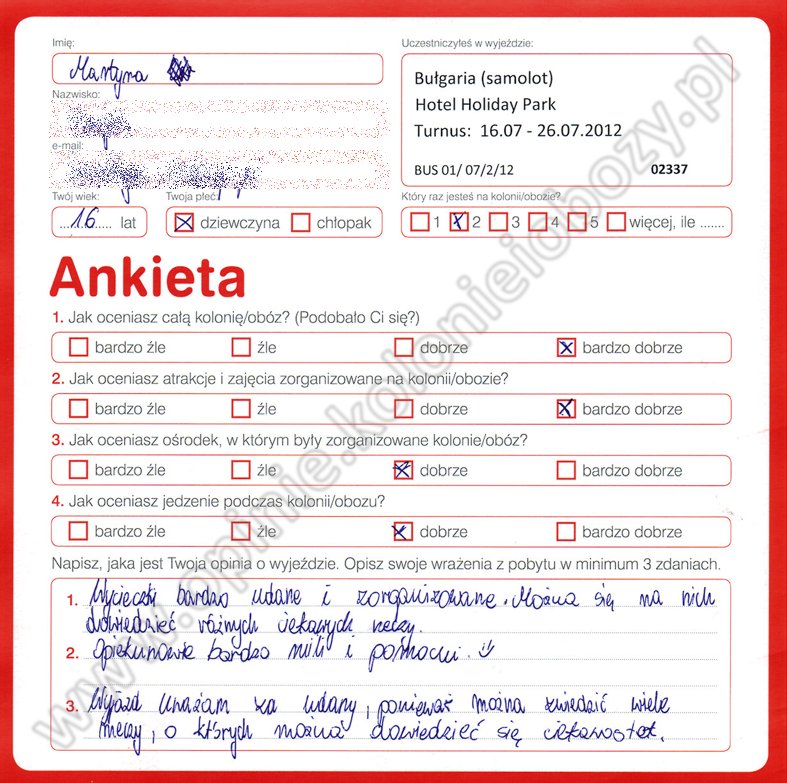 Imię:
Martyna
Nazwisko:
e-mail:
Twój wiek:
...16..... lat
Twoja płeć:
dziewczyna chłopak
Uczestniczyłeś w wyjeździe:
Bułgaria (samolot)
Hotel Holiday Park
Turnus: 16.07 - 26.07.2012
BUS 01/ 07/2/12 02337
Który raz jesteś na kolonii/obozie?
1 2 3 4 5 więcej, ile .......
Ankieta
1. Jak oceniasz całą kolonię/obóz? (Podobało Ci się?)
bardzo źle źle dobrze bardzo dobrze
2. Jak oceniasz atrakcje i zajęcia zorganizowane na kolonii/obozie?
bardzo źle źle dobrze bardzo dobrze
3. Jak oceniasz ośrodek, w którym były zorganizowane kolonie/obóz?
bardzo źle źle dobrze bardzo dobrze
4. Jak oceniasz jedzenie podczas kolonii/obozu?
bardzo źle źle dobrze bardzo dobrze
Napisz, jaka jest Twoja opinia o wyjeździe. Opisz swoje wrażenia z pobytu w minimum 3 zdaniach.
1. Wycieczki bardzo udane i zorganizowane. Można się na nich
dowiedzieć różnych ciekawych rzeczy.
2. Opiekunowie bardzo mili i pomocni.
3. Wyjazd uważam za udany, ponieważ można zwiedzić wiele
miejsc, o których można dowiedzieć się ciekawostek.
www.opinie.kolonieiobozy.pl